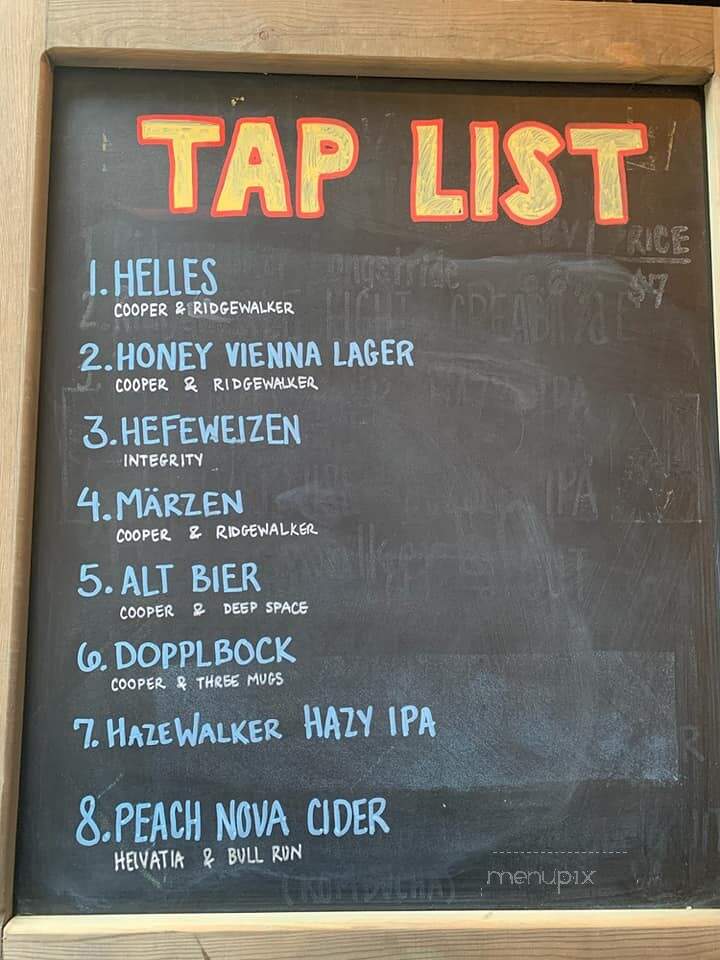 TAP LIST
RICE
$7
1. HELLES
COOPER & RIDGEWALKER
2. HONEY VIENNA LAGER
COOPER & RIDGEWALKER
IPA
3. HEFEWEIZEN
INTEGRITY
4. MÄRZEN
IPA
COOPER & RIDGEWALKER
5. ALT BIER
COOPER & DEEP SPACE
6. DOPPLBOCK
COOPER & THREE MUGS
7. HAZEWALKER HAZY IPA
8. PEACH NOVA CIDER
HELVATIA & BULL RUN
menupix
(KOMBUCHA)